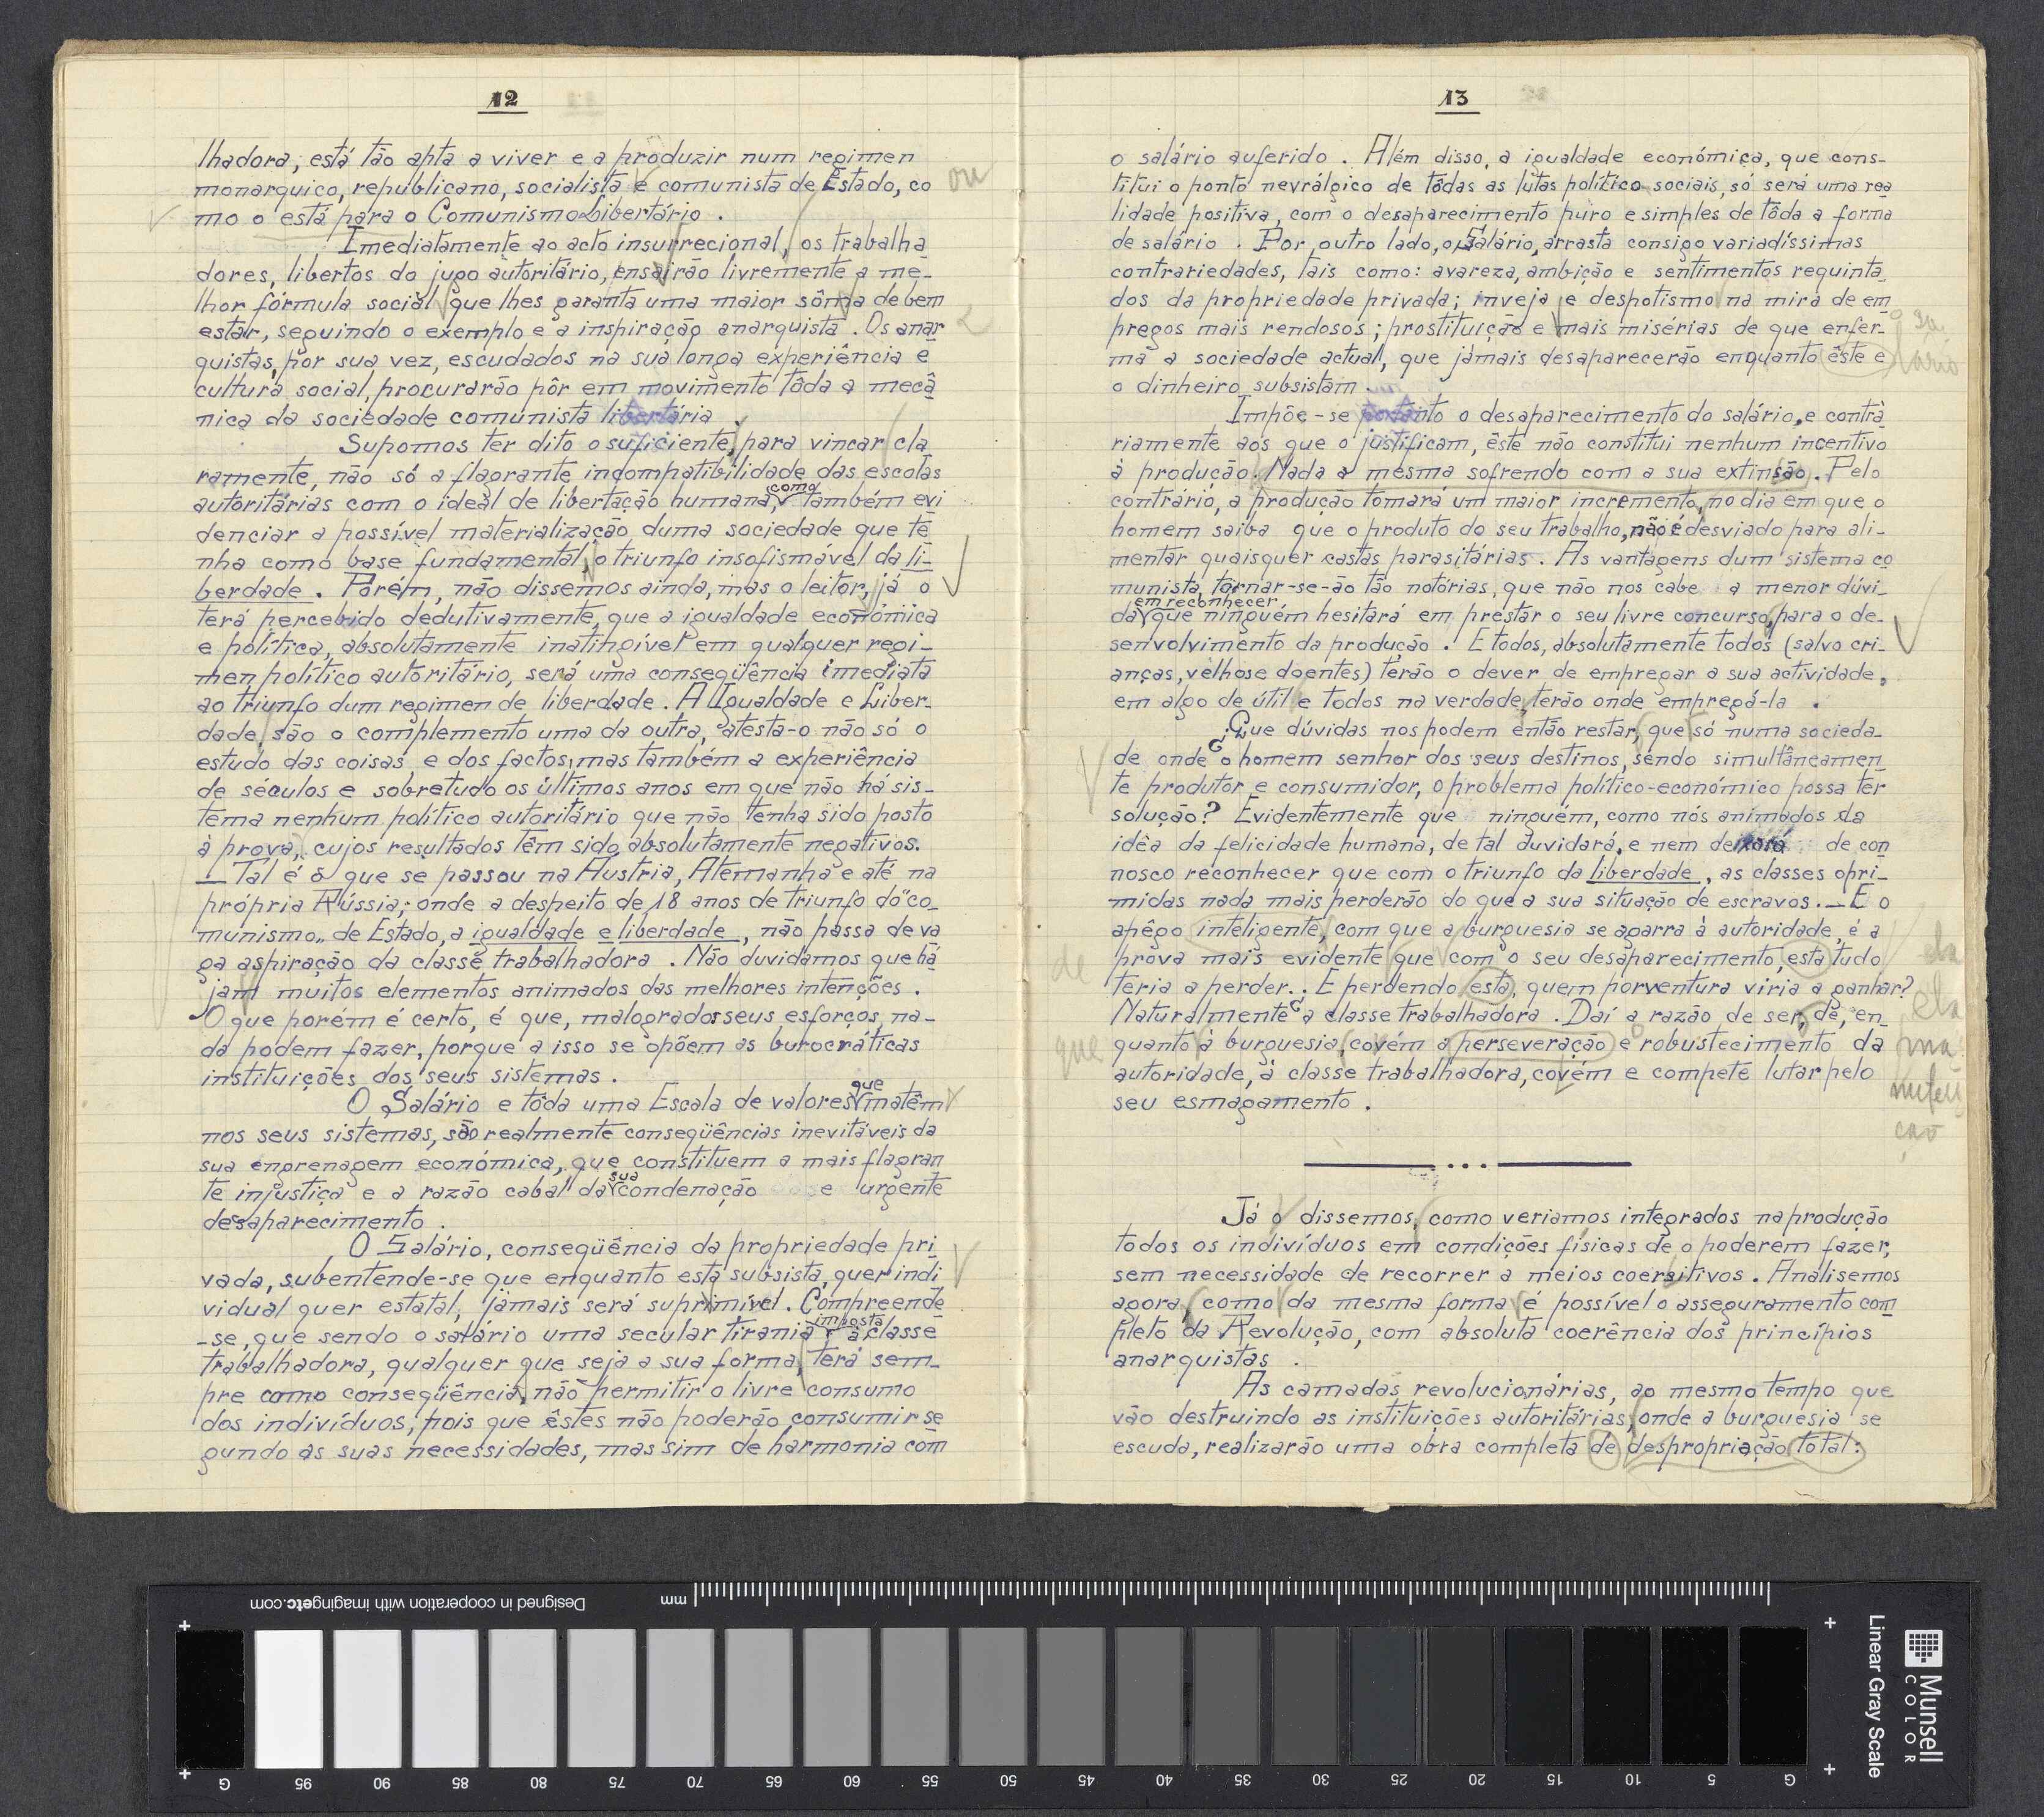 12
lhadora, está tão apta a viver e a produzir num regimen
monarquico, republicano, socialista e comunista de Estado, co ou
mo o está para o Comunismo Libertário.
Imediatamente ao acto insurrecional, os trabalha
dores, libertos do jugo autoritário, ensairão livremente a me-
lhor fórmula social que lhes garanta uma maior sôma de bem
estar, seguindo o exemplo e a inspiração anarquista. Os anar
quistas, por sua vez, escudados na sua longa experiência e
cultura social, procurarão pôr em movimento tôda a mecâ
nica da sociedade comunista libertária.
Supomos ter dito o suficiente, para vincar cla
ramente, não só a flagrante incompatibilidade das escolas
autoritárias com o ideal de libertação humana, como também evi
denciar a possível materialização duma sociedade que te
nha como base fundamental, o triunfo insofismável da li-
berdade. Porém, não dissemos ainda, mas o leitor, já o
terá percebido dedutivamente, que a igualdade económica
e política, absolutamente inatingível em qualquer regi-
men político autoritário, será uma conseqüência imediata
ao triunfo dum regimen de liberdade. A Igualdade e Liber-
dade, são o complemento uma da outra, atesta-o não só o
estudo das coisas e dos factos, mas também a experiência
de séculos e sobretudo os últimos anos em que não há sis-
tema nenhum político autoritário que não tenha sido posto
à prova, cujos resultados têm sido absolutamente negativos.
— Tal é o que se passou na Áustria, Alemanha e até na
própria Rússia; onde a despeito de 18 anos de triunfo do "co-
munismo" de Estado, a igualdade e liberdade, não passa de va
ga aspiração da classe trabalhadora. Não duvidamos que há
jam muitos elementos animados das melhores intenções.
O que porém é certo, é que, malogrados seus esforços, na-
da podem fazer, porque a isso se opõem as burocráticas
instituições dos seus sistemas.
O Salário e tôda uma Escala de valores que matêm
nos seus sistemas, são realmente conseqüências inevitáveis da
sua engrenagem económica, que constituem a mais flagran
te injustiça e a razão cabal da sua condenação e urgente
desaparecimento.
O Salário, conseqüência da propriedade pri
vada, subentende-se que enquanto esta subsista, quer indi
vidual quer estatal, jàmais será suprimível. Compreende
-se, que sendo o salário uma secular tirania imposta à classe
trabalhadora, qualquer que seja a sua forma, terá sem-
pre como conseqüência, não permitir o livre consumo
dos indivíduos; pois que êstes não poderão consumir se
gundo as suas necessidades, mas sim de harmonia com
13
o salário auferido. Além disso, a igualdade económica, que cons-
titui o ponto nevrálgico de tôdas as lutas político-sociais, só será uma rea
lidade positiva, com o desaparecimento puro e simples de tôda a forma
de salário. Por outro lado, o Salário, arrasta consigo variadíssimas
contrariedades, tais como: avareza, ambição e sentimentos requinta
dos da propriedade privada; inveja e despotismo na mira de em
pregos mais rendosos; prostituição e mais misérias de que enfer-
ma a sociedade actual, que jàmais desaparecerão enquanto êste e o salário
o dinheiro subsistam.
Impõe-se portanto o desaparecimento do salário, e contrà
riamente aos que o justificam, êste não constitui nenhum incentivo
à produção. Nada a mesma sofrendo com a sua extinsão. Pelo
contrário, a produção tomará um maior incremento, no dia em que o
homem saiba que o produto do seu trabalho, não é desviado para ali-
mentar quaisquer castas parasitárias. As vantagens dum sistema co
munista, tornar-se-ão tão notórias, que não nos cabe a menor dúvi-
da em reconhecer que ninguém hesitará em prestar o seu livre concurso, para o de-
senvolvimento da produção. E todos, absolutamente todos (salvo cri-
anças, velhos e doentes) terão o dever de empregar a sua actividade,
em algo de útil e todos na verdade, terão onde empregá-la.
¿Que dúvidas nos podem então restar, que só numa socieda-
de onde o homem senhor dos seus destinos, sendo simultâneamen
te produtor e consumidor, o problema político-económico possa ter
solução? Evidentemente que ninguém, como nós animados da
idêa da felicidade humana, de tal duvidará, e nem deixará de con
nosco reconhecer que com o triunfo da liberdade, as classes opri-
midas nada mais perderão do que a sua situação de escravos. — E o
apêgo inteligente, com que a burguesia se agarra à autoridade, é a
de prova mais evidente que com o seu desaparecimento, esta tudo ela
teria a perder. E perdendo esta, quem porventura viria a ganhar? ela
Naturalmente a classe trabalhadora. Daí a razão de ser, de, en-
que quanto à burguesia, covém a perseveração e robustecimento da manuten
autoridade, à classe trabalhadora, covém e compete lutar pelo ção
seu esmagamento.
Já o dissemos, como veriamos integrados na produção
todos os indivíduos em condições físicas de o poderem fazer,
sem necessidade de recorrer a meios coersitivos. Analisemos
agora, como da mesma forma é possível o asseguramento com
pleto da Revolução, com absoluta coerência dos princípios
anarquistas.
As camadas revolucionárias, ao mesmo tempo que
vão destruindo as instituições autoritárias, onde a burguesia se
escuda, realizarão uma obra completa de despropriação total:
Designed in cooperation with imagingetc.com
mm
G 95 90 85 80 75 70 65 60 55 50 45 40 35 30 25 20 15 10 5 G
Linear Gray Scale
Munsell
COLOR